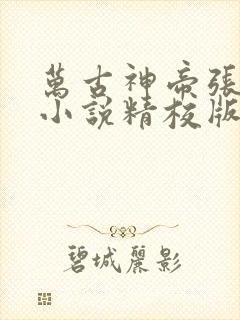 萬古神帝張
小說精校版
碧城麗影